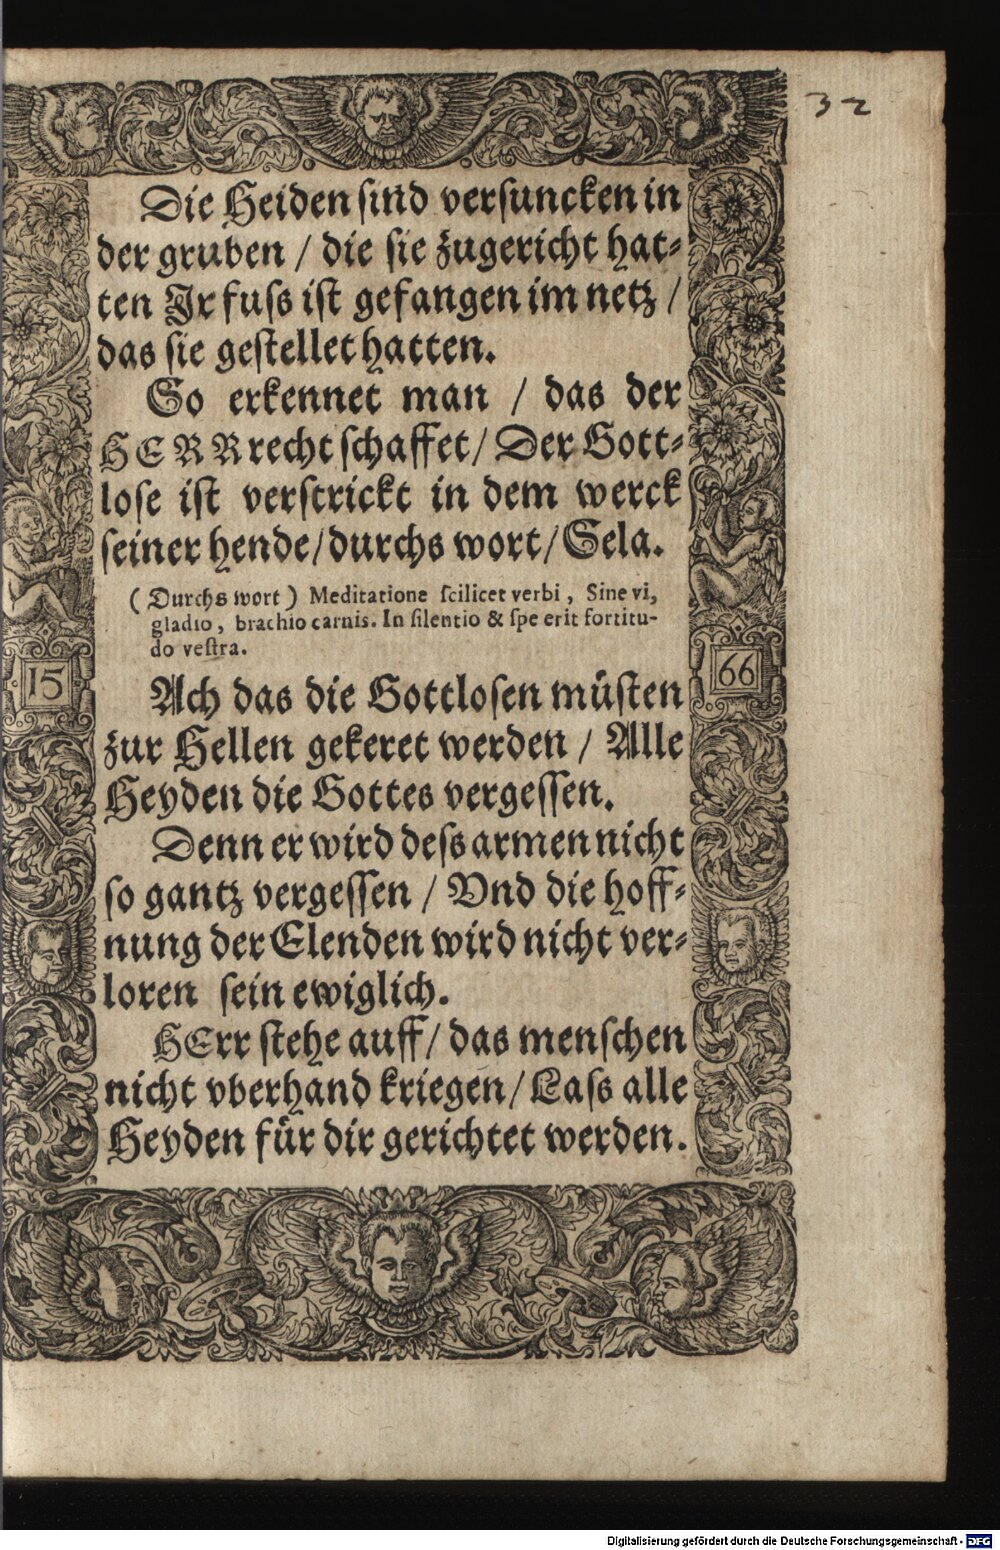 32
Die Heiden sind versuncken in
der gruben / die sie zugericht hat-
ten Jr fuss ist gefangen im netz /
das sie gestellet hatten.
So erkennet man / das der
HERR recht schaffet / Der Gott-
lose ist verstrickt in dem werck
seiner hende / durchs wort / Sela.
( Durchs wort ) Meditatione scilicet verbi , Sine vi,
gladio , brachio carnis. In silentio & spe erit fortitu-
do vestra.
15
66
Ach das die Gottlosen müsten
zur Hellen gekeret werden / Alle
Heyden die Gottes vergessen.
Denn er wird dess armen nicht
so gantz vergessen / Vnd die hoff-
nung der Elenden wird nicht ver-
loren sein ewiglich.
HErr stehe auff / das menschen
nicht vberhand kriegen / Lass alle
Heyden für dir gerichtet werden.
Digitalisierung gefördert durch die Deutsche Forschungsgemeinschaft - DFG